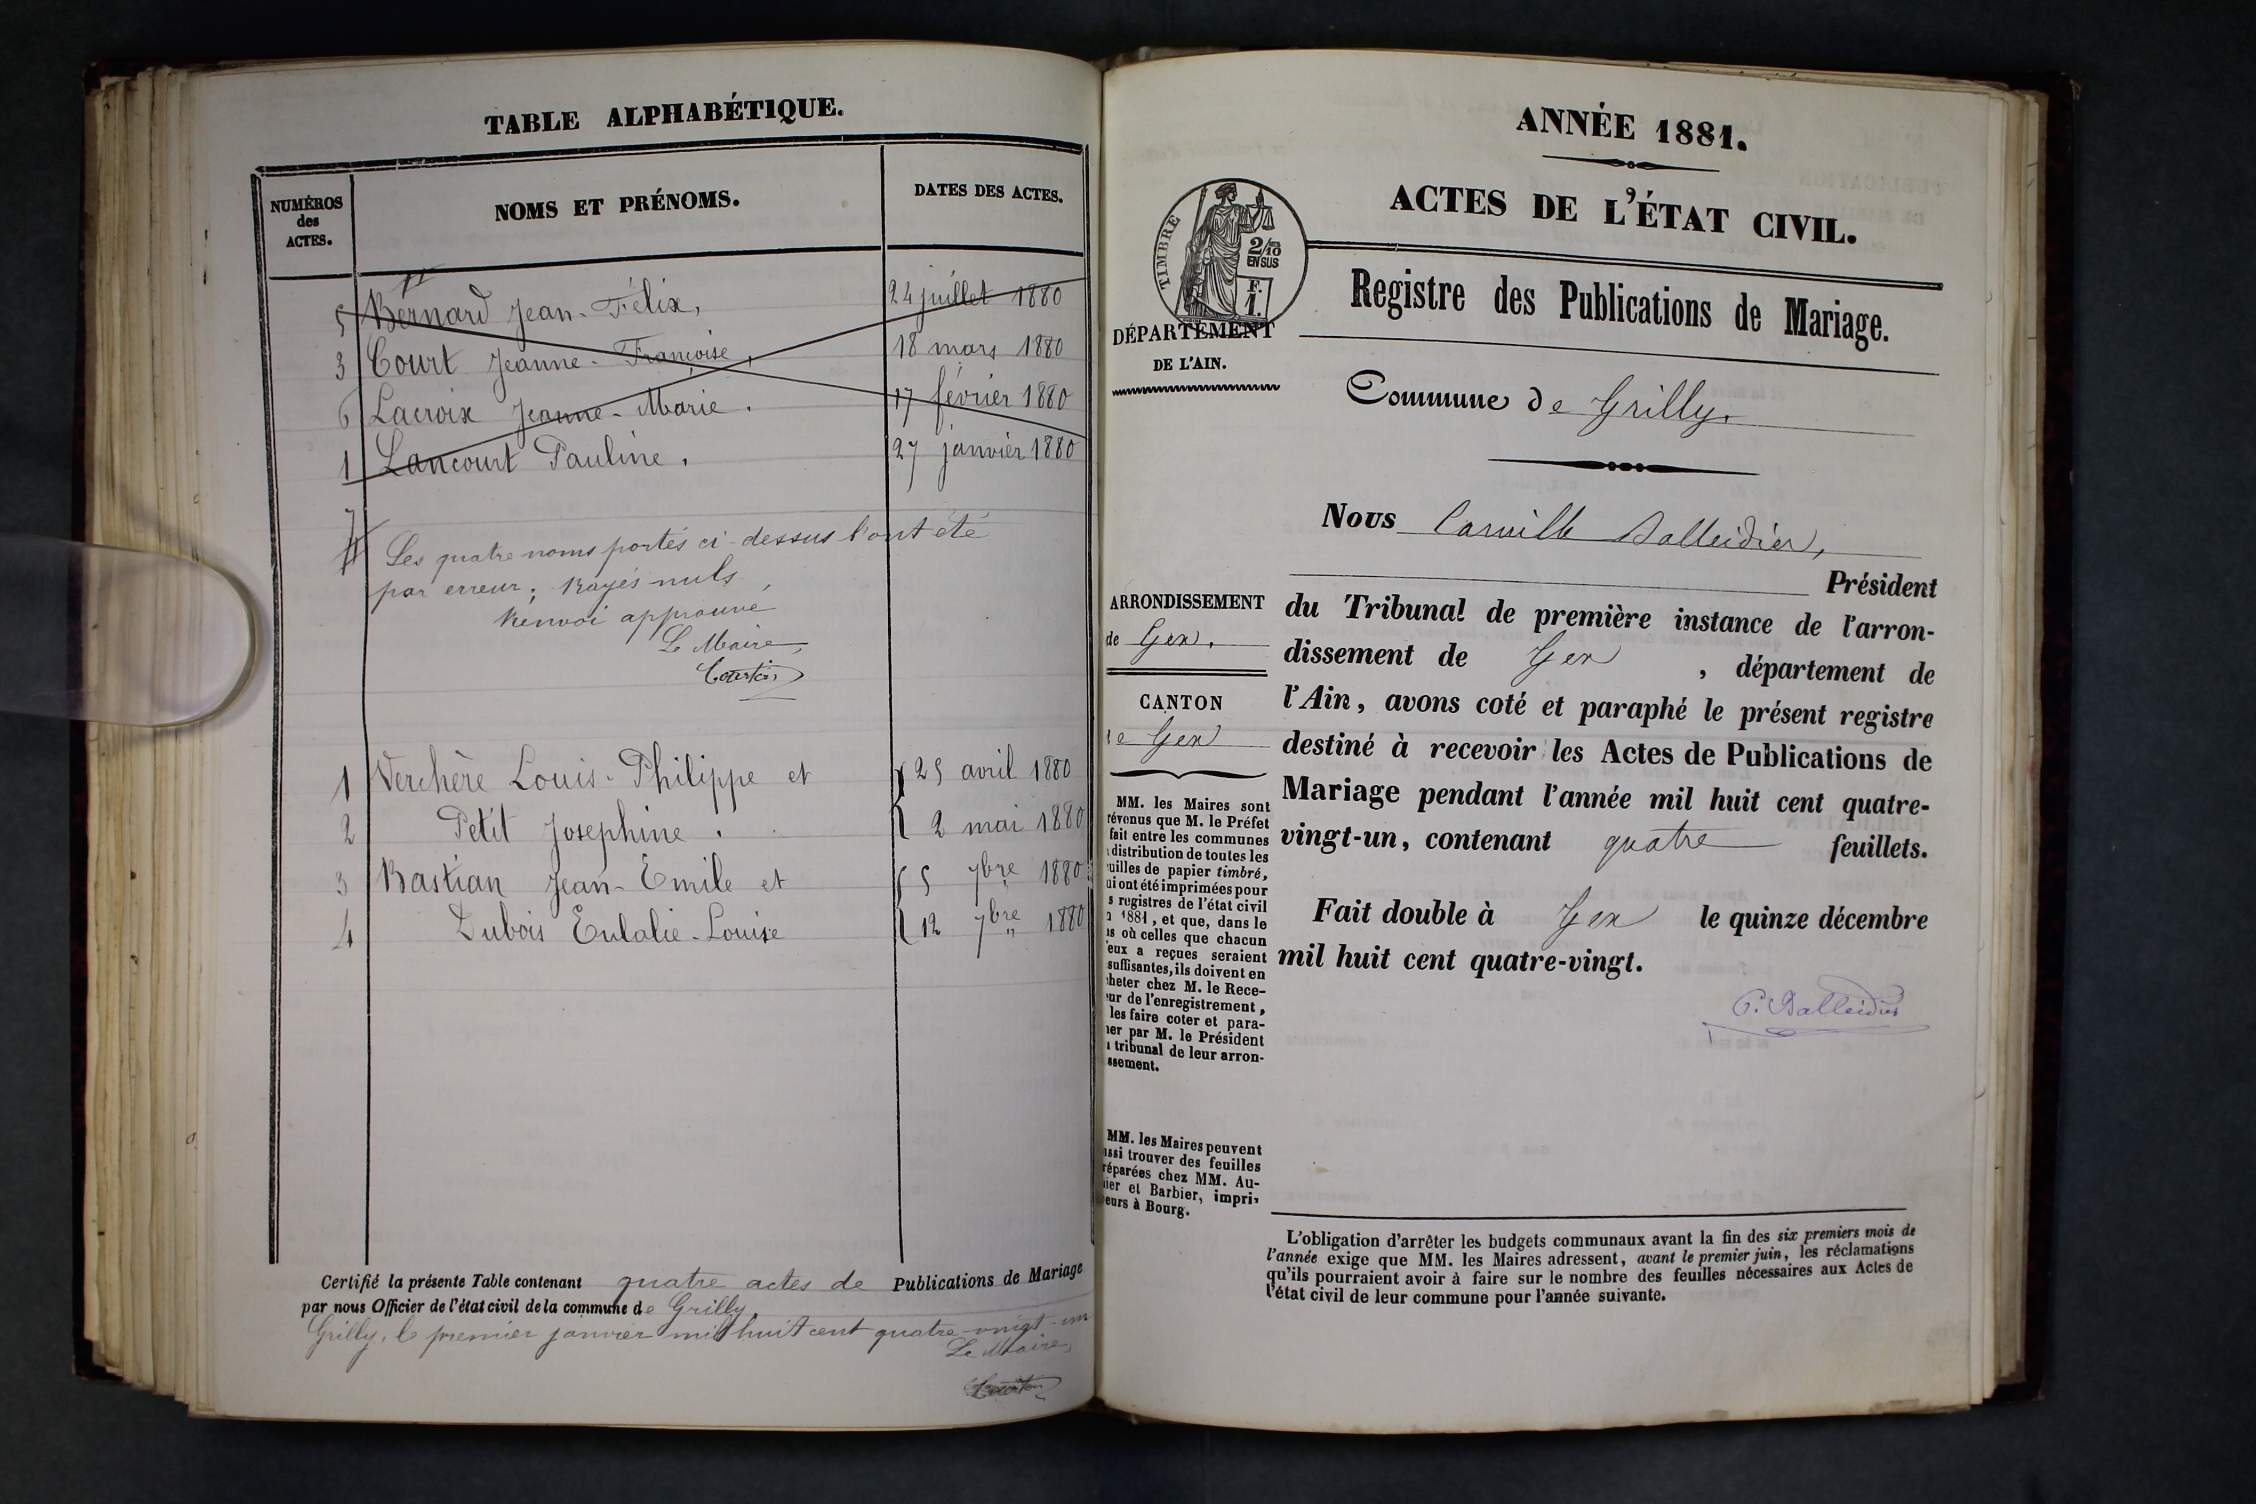 TABLE ALPHABÉTIQUE.
NUMÉROS
des
ACTES.
NOMS ET PRÉNOMS.
DATES DES ACTES.
5 Bernard Jean-Félix, 24 juillet 1880
3 Court Jeanne-Françoise, 18 mars 1880
6 Lacroix Jeanne-Marie. 17 février 1880
1 Lancourt Pauline. 27 janvier 1880
Les quatre noms portés ci-dessus l'ont été
par erreur; Rayés nuls,
Renvoi approuvé
Le Maire,
1 Verchère Louis-Philippe et 25 avril 1880
2 Petit Josephine. 2 mai 1880
3 Bastian Jean-Emile et 5 7bre 1880
4 Dubois Eulalie-Louise 12 7bre 1880
Certifié la présente Table contenant quatre actes de Publications de Mariage
par nous Officier de l'état civil de la commune de Grilly.
Grilly, le premier janvier mil huit cent quatre-vingt-un
Le Maire,
ANNÉE 1881.
ACTES DE L'ÉTAT CIVIL.
TIMBRE
2/10
EN SUS
F.
1.
DÉPARTEMENT
DE L'AIN.
Registre des Publications de Mariage.
Commune de Grilly.
Nous Camille Balleidier,
Président
du Tribunal de première instance de l'arron-
dissement de Gex, département de
l'Ain, avons coté et paraphé le présent registre
destiné à recevoir les Actes de Publications de
Mariage pendant l'année mil huit cent quatre-
vingt-un, contenant quatre feuillets.
Fait double à Gex le quinze décembre
mil huit cent quatre-vingt.
C. Balleidier
ARRONDISSEMENT
de Gex.
CANTON
e Gex
MM. les Maires sont
révenus que M. le Préfet
fait entre les communes
distribution de toutes les
uilles de papier timbré,
ui ont été imprimées pour
s registres de l'état civil
1881, et que, dans le
s où celles que chacun
eux a reçues seraient
suffisantes, ils doivent en
heter chez M. le Rece-
ur de l'enregistrement,
les faire coter et para-
er par M. le Président
tribunal de leur arron-
ssement.
MM. les Maires peuvent
ussi trouver des feuilles
réparées chez MM. Au-
ier et Barbier, impri-
eurs à Bourg.
L'obligation d'arrêter les budgets communaux avant la fin des six premiers mois de
l'année exige que MM. les Maires adressent, avant le premier juin, les réclamations
qu'ils pourraient avoir à faire sur le nombre des feuilles nécessaires aux Actes de
l'état civil de leur commune pour l'année suivante.